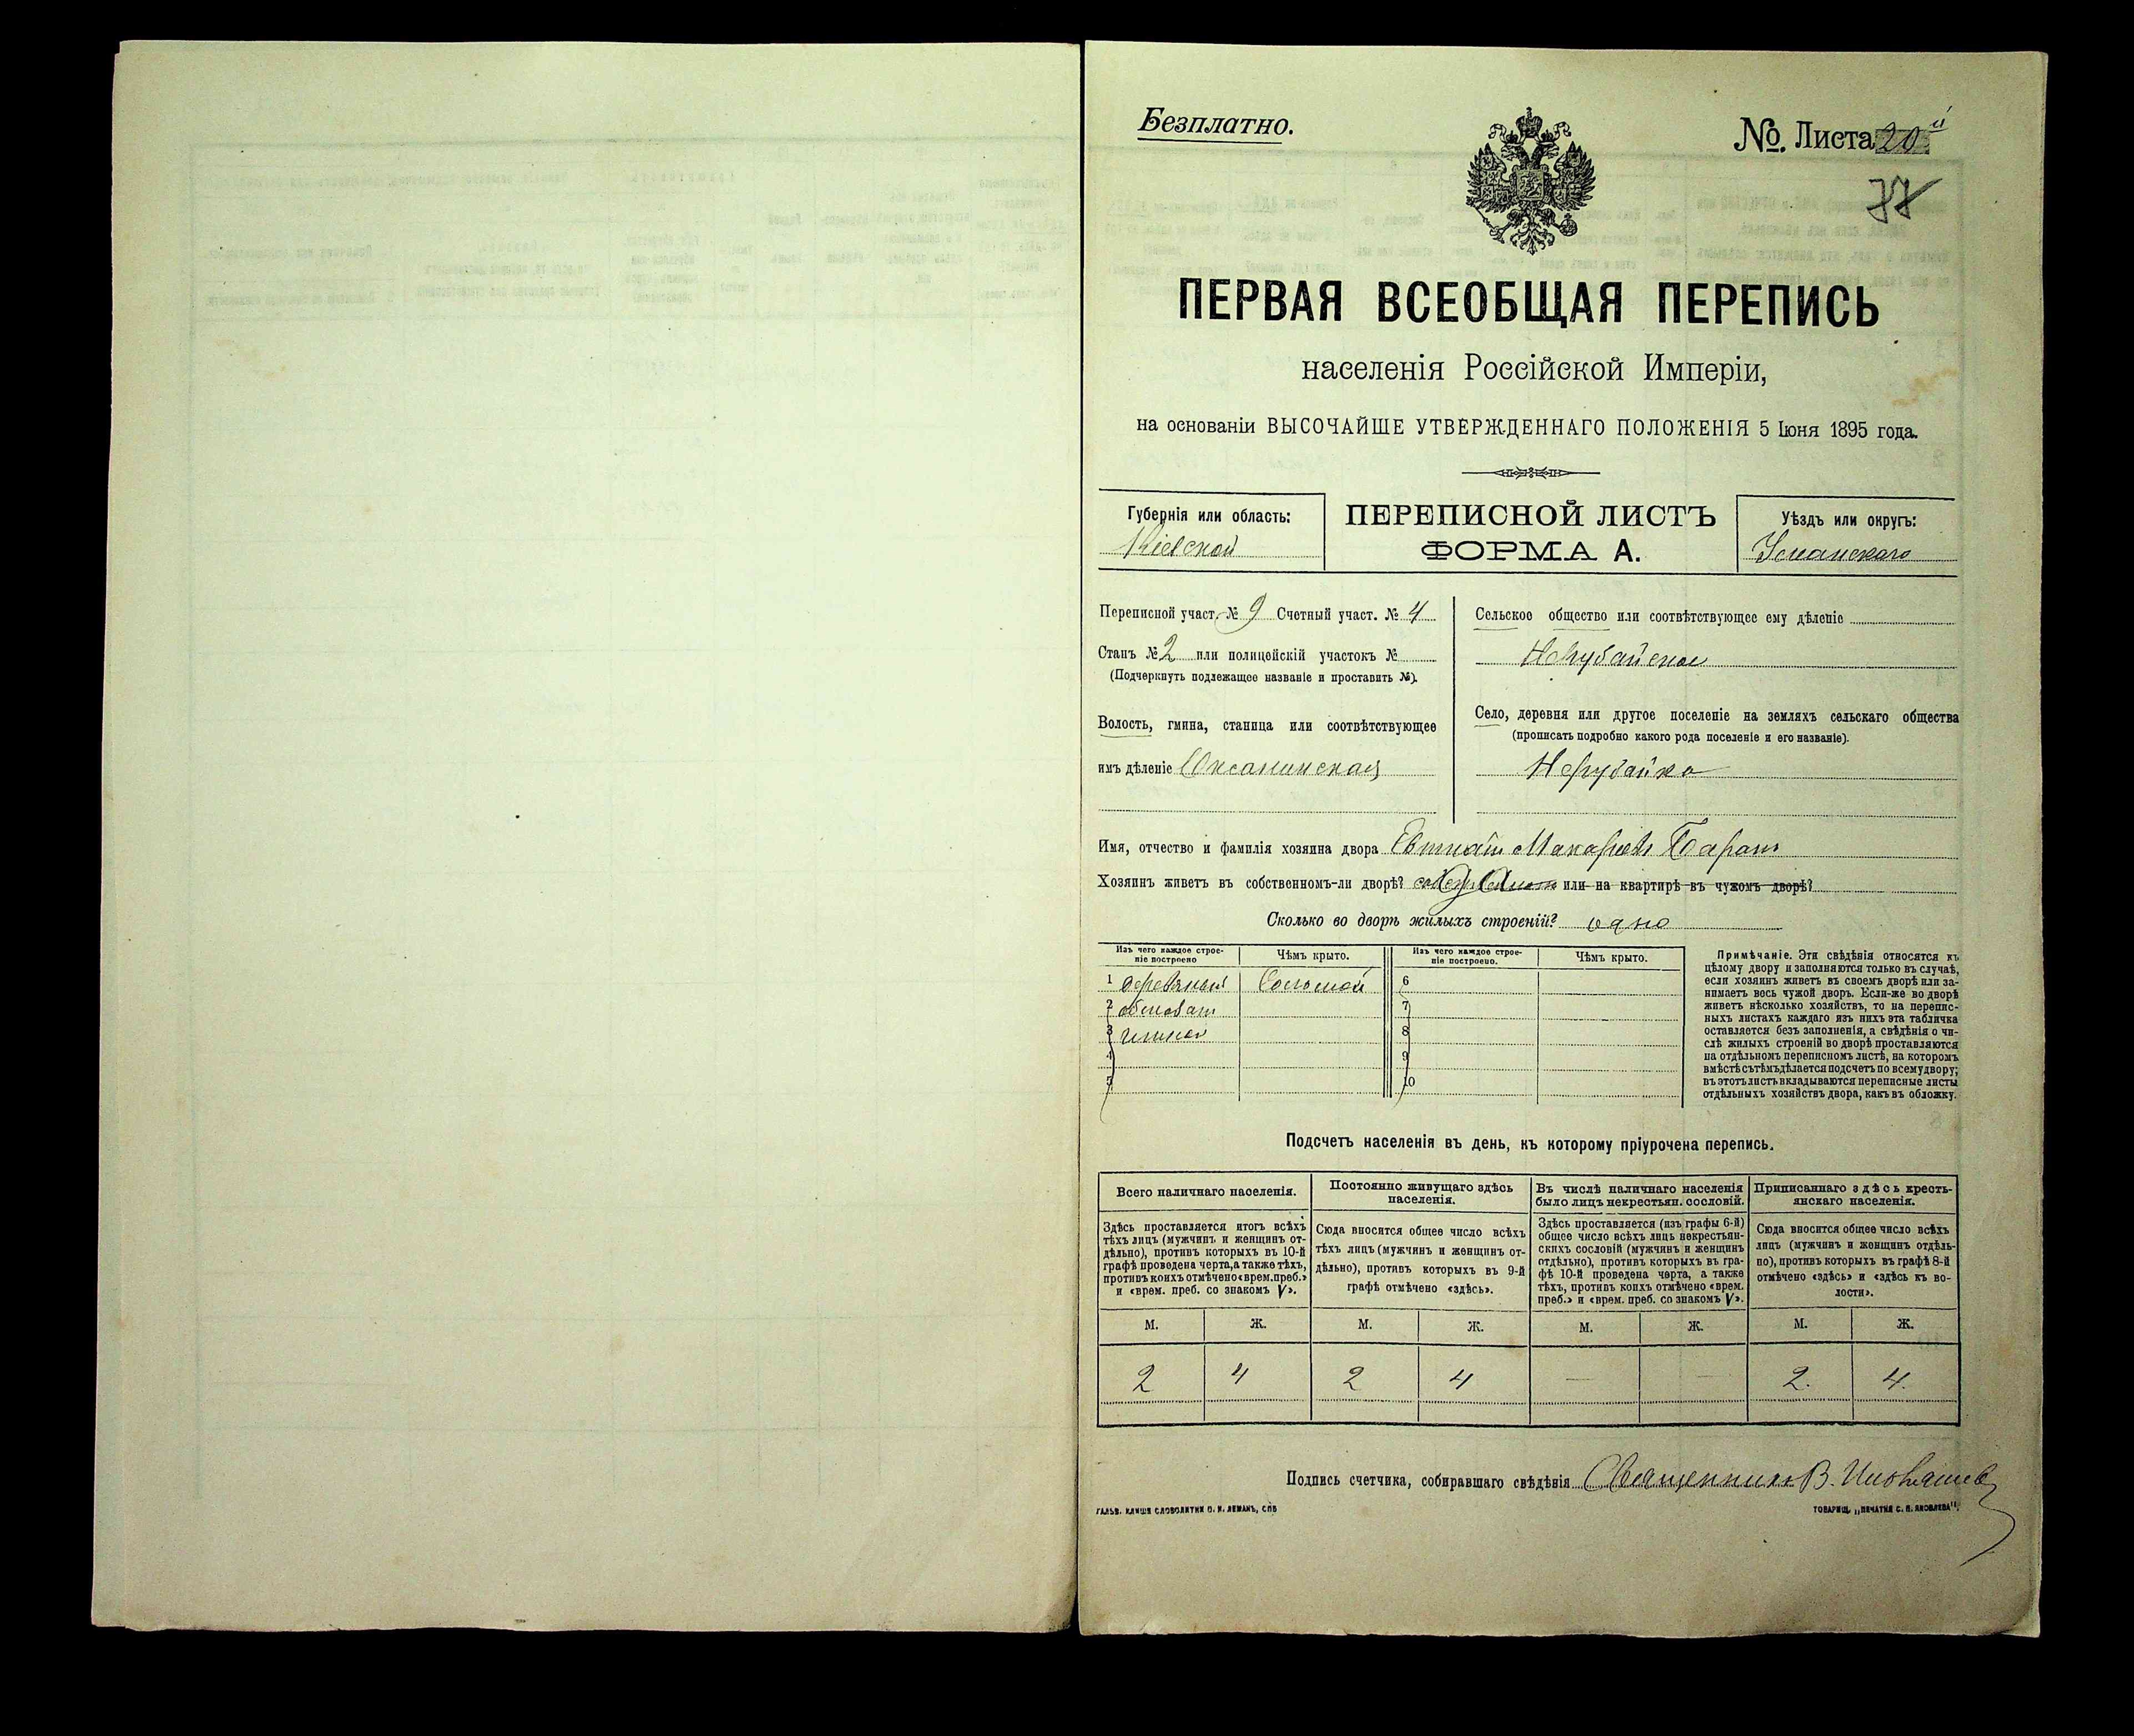 Безплатно.
№. Листа 20й
ПЕРВАЯ ВСЕОБЩАЯ ПЕРЕПИСЬ
населенія Россійской Имперіи,
на основаніи ВЫСОЧАЙШЕ УТВЕРЖДЕННАГО ПОЛОЖЕНІЯ 5 Іюня 1895 года.
Губернія или область:
Кіевской
ПЕРЕПИСНОЙ ЛИСТЪ
ФОРМА А.
Уѣздъ или округъ:
Уманскаго
Переписной участ. № 9 Счетный участ. № 4
Станъ № 2 или полицейскій участокъ №
(Подчеркнуть подлежащее названіе и проставить №).
Волость, гмина, станица или соотвѣтствующее
имъ дѣленіе Оксанинская
Сельское общество или соотвѣтствующее ему дѣленіе
Нерубайское
Село, деревня или другое поселеніе на земляхъ сельскаго общества
(прописать подробно какого рода поселеніе и его названіе).
Нерубайка
Имя, отчество и фамилія хозяина двора Макаріевъ Баранъ
Хозяинъ живетъ въ собственномъ-ли дворѣ? или на квартирѣ въ чужомъ дворѣ?
Сколько во дворѣ жилыхъ строеній? одно
Изъ чего каждое строе-
ніе построено
Чѣмъ крыто.
Изъ чего каждое строе-
ніе построено.
Чѣмъ крыто.
1 Соломой 6
2 7
3 8
4 9
5 10
Примѣчаніе. Эти свѣдѣнія относятся къ
цѣлому двору и заполняются только въ случаѣ,
если хозяинъ живетъ въ своемъ дворѣ или за-
нимаетъ весь чужой дворъ. Если-же во дворѣ
живетъ нѣсколько хозяйствъ, то на перепис-
ныхъ листахъ каждаго изъ нихъ эта табличка
оставляется безъ заполненія, а свѣдѣнія о чи-
слѣ жилыхъ строеній во дворѣ проставляются
на отдѣльномъ переписномъ листѣ, на которомъ
вмѣстѣ съ тѣмъ дѣлается подсчетъ по всему двору;
въ этотъ листъ вкладываются переписные листы
отдѣльныхъ хозяйствъ двора, какъ въ обложку.
Подсчетъ населенія въ день, къ которому пріурочена перепись.
Всего наличнаго населенія.
Здѣсь проставляется итогъ всѣхъ
тѣхъ лицъ (мужчинъ и женщинъ от-
дѣльно), противъ которыхъ въ 10-й
графѣ проведена черта, а также тѣхъ,
противъ коихъ отмѣчено «врем. преб.»
и «врем. преб. со знакомъ V».
Постоянно живущаго здѣсь
населенія.
Сюда вносится общее число всѣхъ
тѣхъ лицъ (мужчинъ и женщинъ от-
дѣльно), противъ которыхъ въ 9-й
графѣ отмѣчено «здѣсь».
Въ числѣ наличнаго населенія
было лицъ некрестьян. сословій.
Здѣсь проставляется (изъ графы 6-й)
общее число всѣхъ лицъ некрестьян-
скихъ сословій (мужчинъ и женщинъ
отдѣльно), противъ которыхъ въ гра-
фѣ 10-й проведена черта, а также
тѣхъ, противъ коихъ отмѣчено «врем.
преб.» и «врем. преб. со знакомъ V».
Приписаннаго здѣсь кресть-
янскаго населенія.
Сюда вносится общее число всѣхъ
лицъ (мужчинъ и женщинъ отдѣль-
но), противъ которыхъ въ графѣ 8-й
отмѣчено «здѣсь» и «здѣсь къ во-
лости».
М. Ж. М. Ж. М. Ж. М. Ж.
2 4 2 4 — — 2. 4.
Подпись счетчика, собиравшаго свѣдѣнія Священникъ В.
ГАЛЬВ. КЛИШЕ СЛОВОЛИТНИ О. И. ЛЕМАНЪ, СПБ
ТОВАРИЩ. „ПЕЧАТНЯ С. П. ЯКОВЛЕВА".